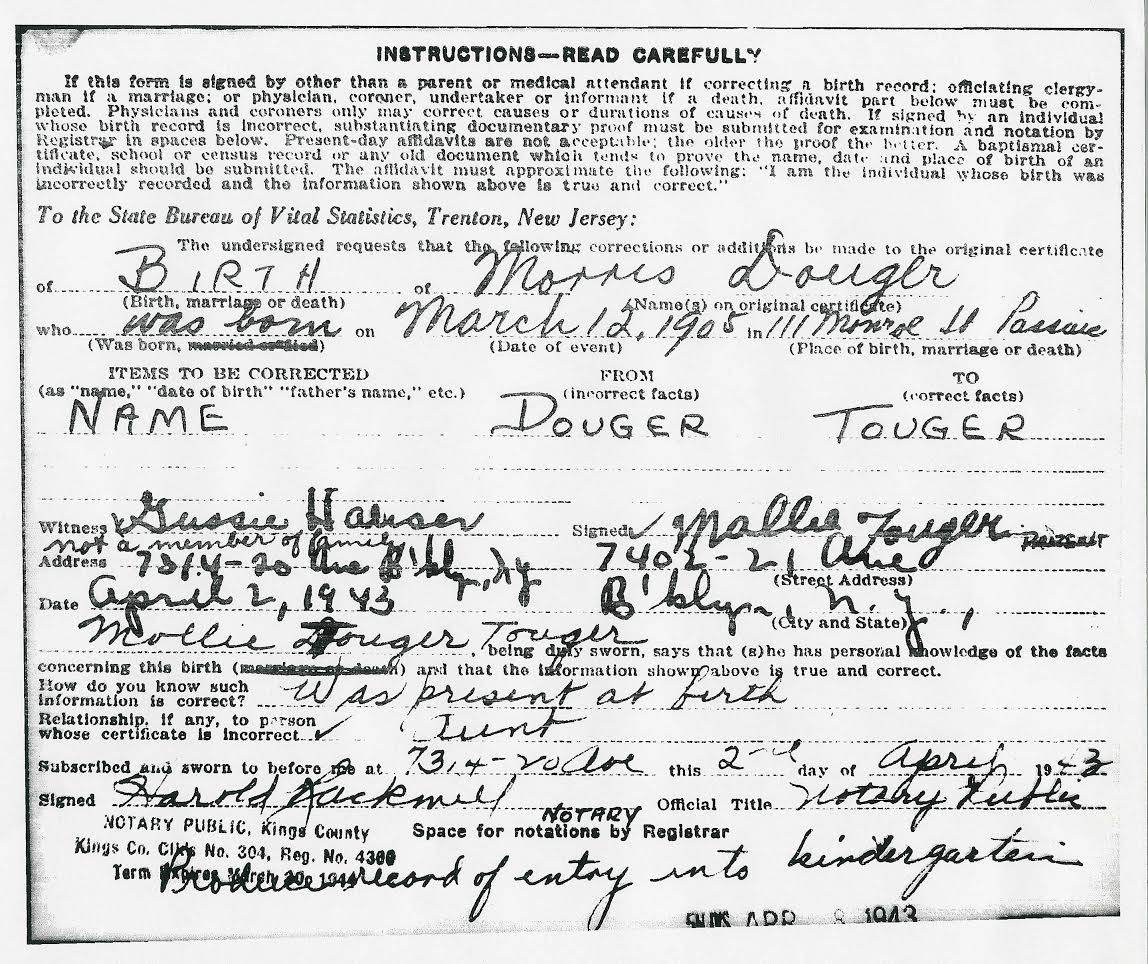 INSTRUCTIONS—READ CAREFULLY
If this form is signed by other than a parent or medical attendant if correcting a birth record; officiating clergy-
man if a marriage; or physician, coroner, undertaker or informant if a death, affidavit part below must be com-
pleted. Physicians and coroners only may correct causes or durations of causes of death. If signed by an individual
whose birth record is incorrect, substantiating documentary proof must be submitted for examination and notation by
Registrar in spaces below. Present-day affidavits are not acceptable; the older the proof the better. A baptismal cer-
tificate, school or census record or any old document which tends to prove the name, date and place of birth of an
individual should be submitted. The affidavit must approximate the following: "I am the individual whose birth was
incorrectly recorded and the information shown above is true and correct."
To the State Bureau of Vital Statistics, Trenton, New Jersey:
The undersigned requests that the following corrections or additions be made to the original certificate
of BIRTH of Morris Douger
(Birth, marriage or death) (Name(s) on original certificate)
who was born on March 12, 1905 in 111 Monroe St Passaic
(Was born, married or died) (Date of event) (Place of birth, marriage or death)
ITEMS TO BE CORRECTED FROM TO
(as "name," "date of birth" "father's name," etc.) (incorrect facts) (correct facts)
NAME DOUGER TOUGER
Witness Gussie Hauser Signed Mollie Touger
not a member of family
Address 7314-20 Ave B'klyn, Ny 7402-21 Ave
(Street Address)
Date April 2, 1943 B'klyn, N.Y.,
(City and State)
Mollie Touger Touger, being duly sworn, says that (s)he has personal knowledge of the facts
concerning this birth (marriage or death) and that the information shown above is true and correct.
How do you know such
information is correct? Was present at birth
Relationship, if any, to person
whose certificate is incorrect Aunt
Subscribed and sworn to before me at 7314-20 Ave this 2nd day of April 1943
Signed Harold Official Title Notary Public
NOTARY
NOTARY PUBLIC, Kings County Space for notations by Registrar
Kings Co. Clk's No. 304, Reg. No. 4300
Term Expires March 30, 1944
Produce record of entry into kindergarten
APR 8 1943